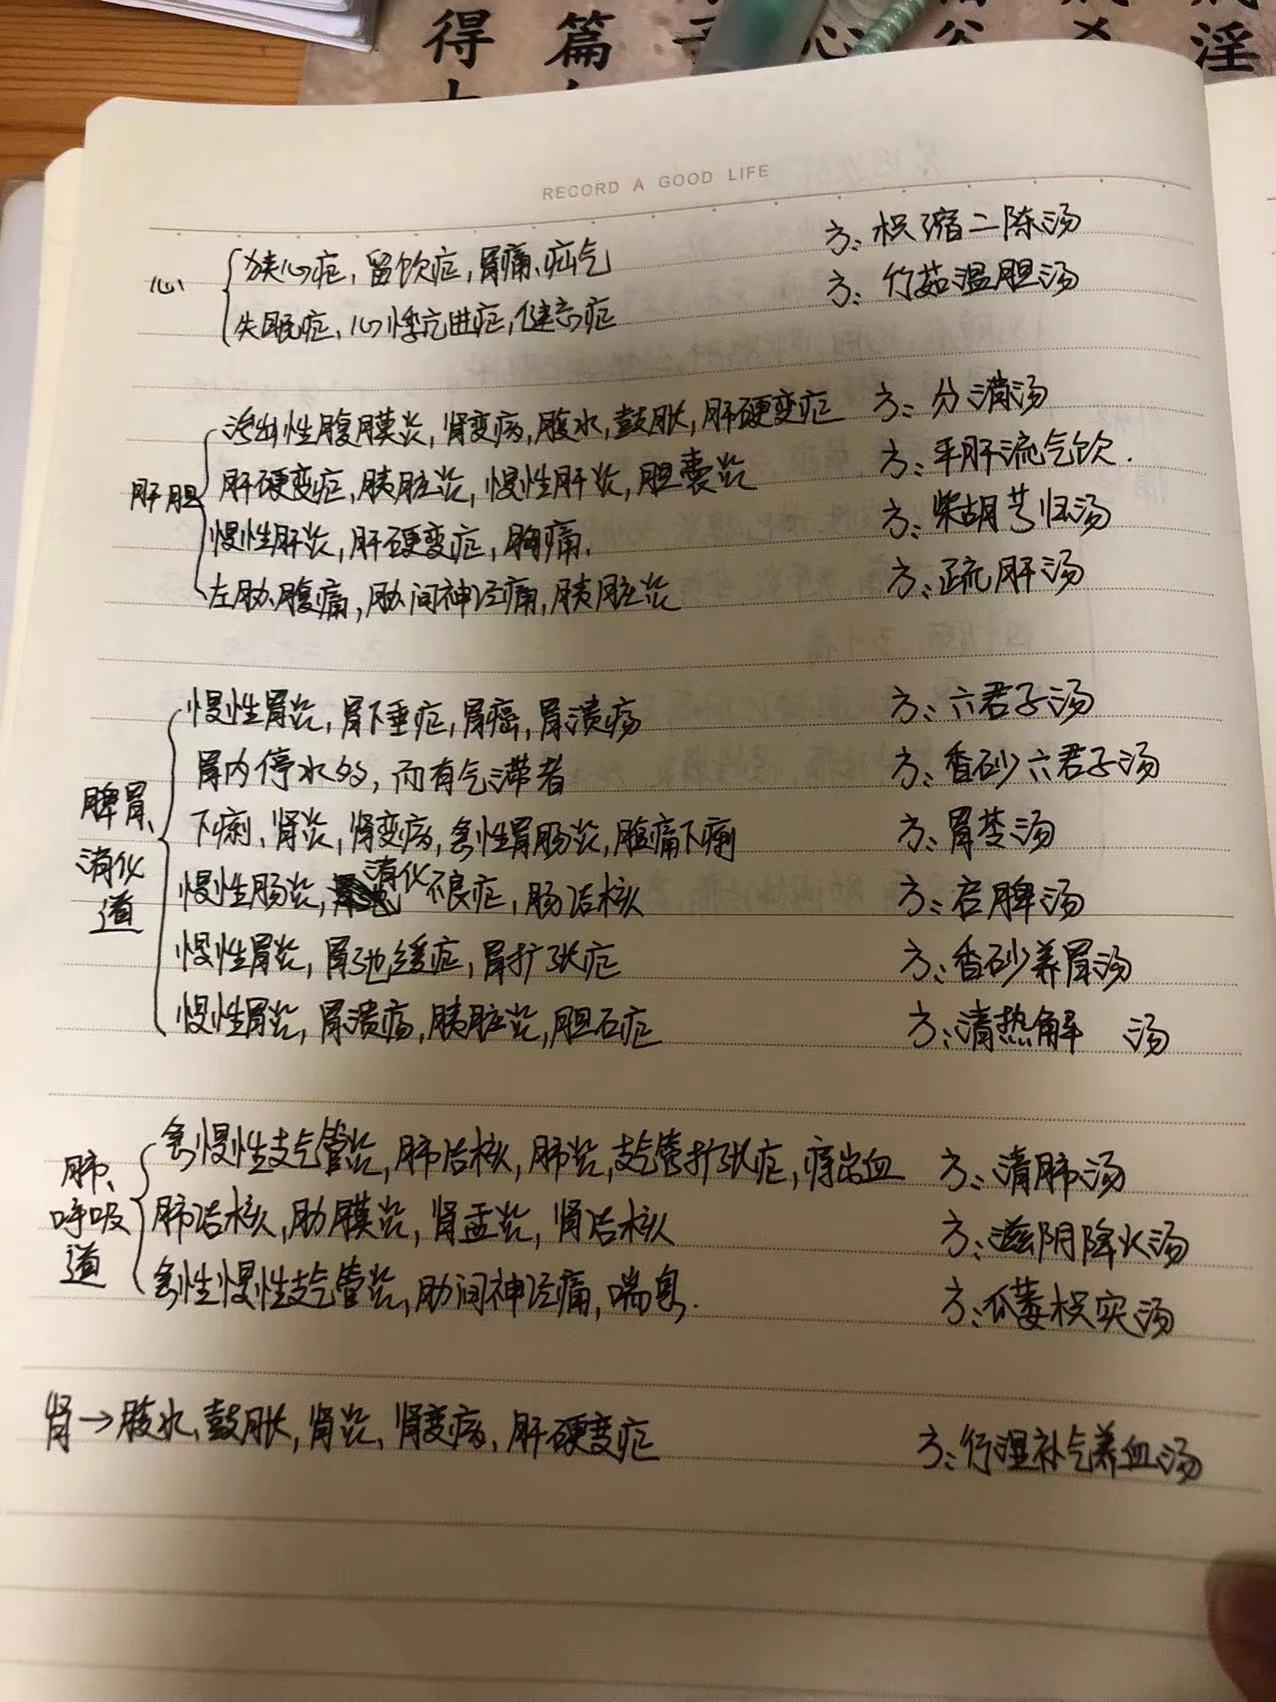 得 篇 心 淫
RECORD A GOOD LIFE
心
狭心症，留饮症，胃痛、疝气 方：枳缩二陈汤
失眠症、心悸亢进症，健忘症 方：竹茹温胆汤
肝胆
渗出性腹膜炎，肾变病，腹水，鼓胀，肝硬变症 方：分消汤
肝硬变症，胰脏炎，慢性肝炎，胆囊炎 方：平肝流气饮.
慢性肝炎，肝硬变症，胸痛. 方：柴胡芎归汤
左肋腹痛，肋间神经痛，胰脏炎 方：疏肝汤
脾胃、
消化
道
慢性胃炎，胃下垂症，胃癌，胃溃疡 方：六君子汤
胃内停水多，而有气滞者 方：香砂六君子汤
下痢、肾炎，肾变病，急性胃肠炎，腹痛下痢 方：胃苓汤
慢性肠炎，消化不良症，肠结核 方：启脾汤
慢性胃炎，胃弛缓症，胃扩张症 方：香砂养胃汤
慢性胃炎，胃溃疡，胰脏炎，胆石症 方：清热解 汤
肺、
呼吸
道
急慢性支气管炎，肺结核，肺炎，支气管扩张症，痔出血 方：清肺汤
肺结核，肋膜炎，肾盂炎，肾结核 方：滋阴降火汤
急性慢性支气管炎，肋间神经痛，喘息. 方：瓜蒌枳实汤
肾→腹水，鼓胀，肾炎，肾变病，肝硬变症 方：行湿补气养血汤